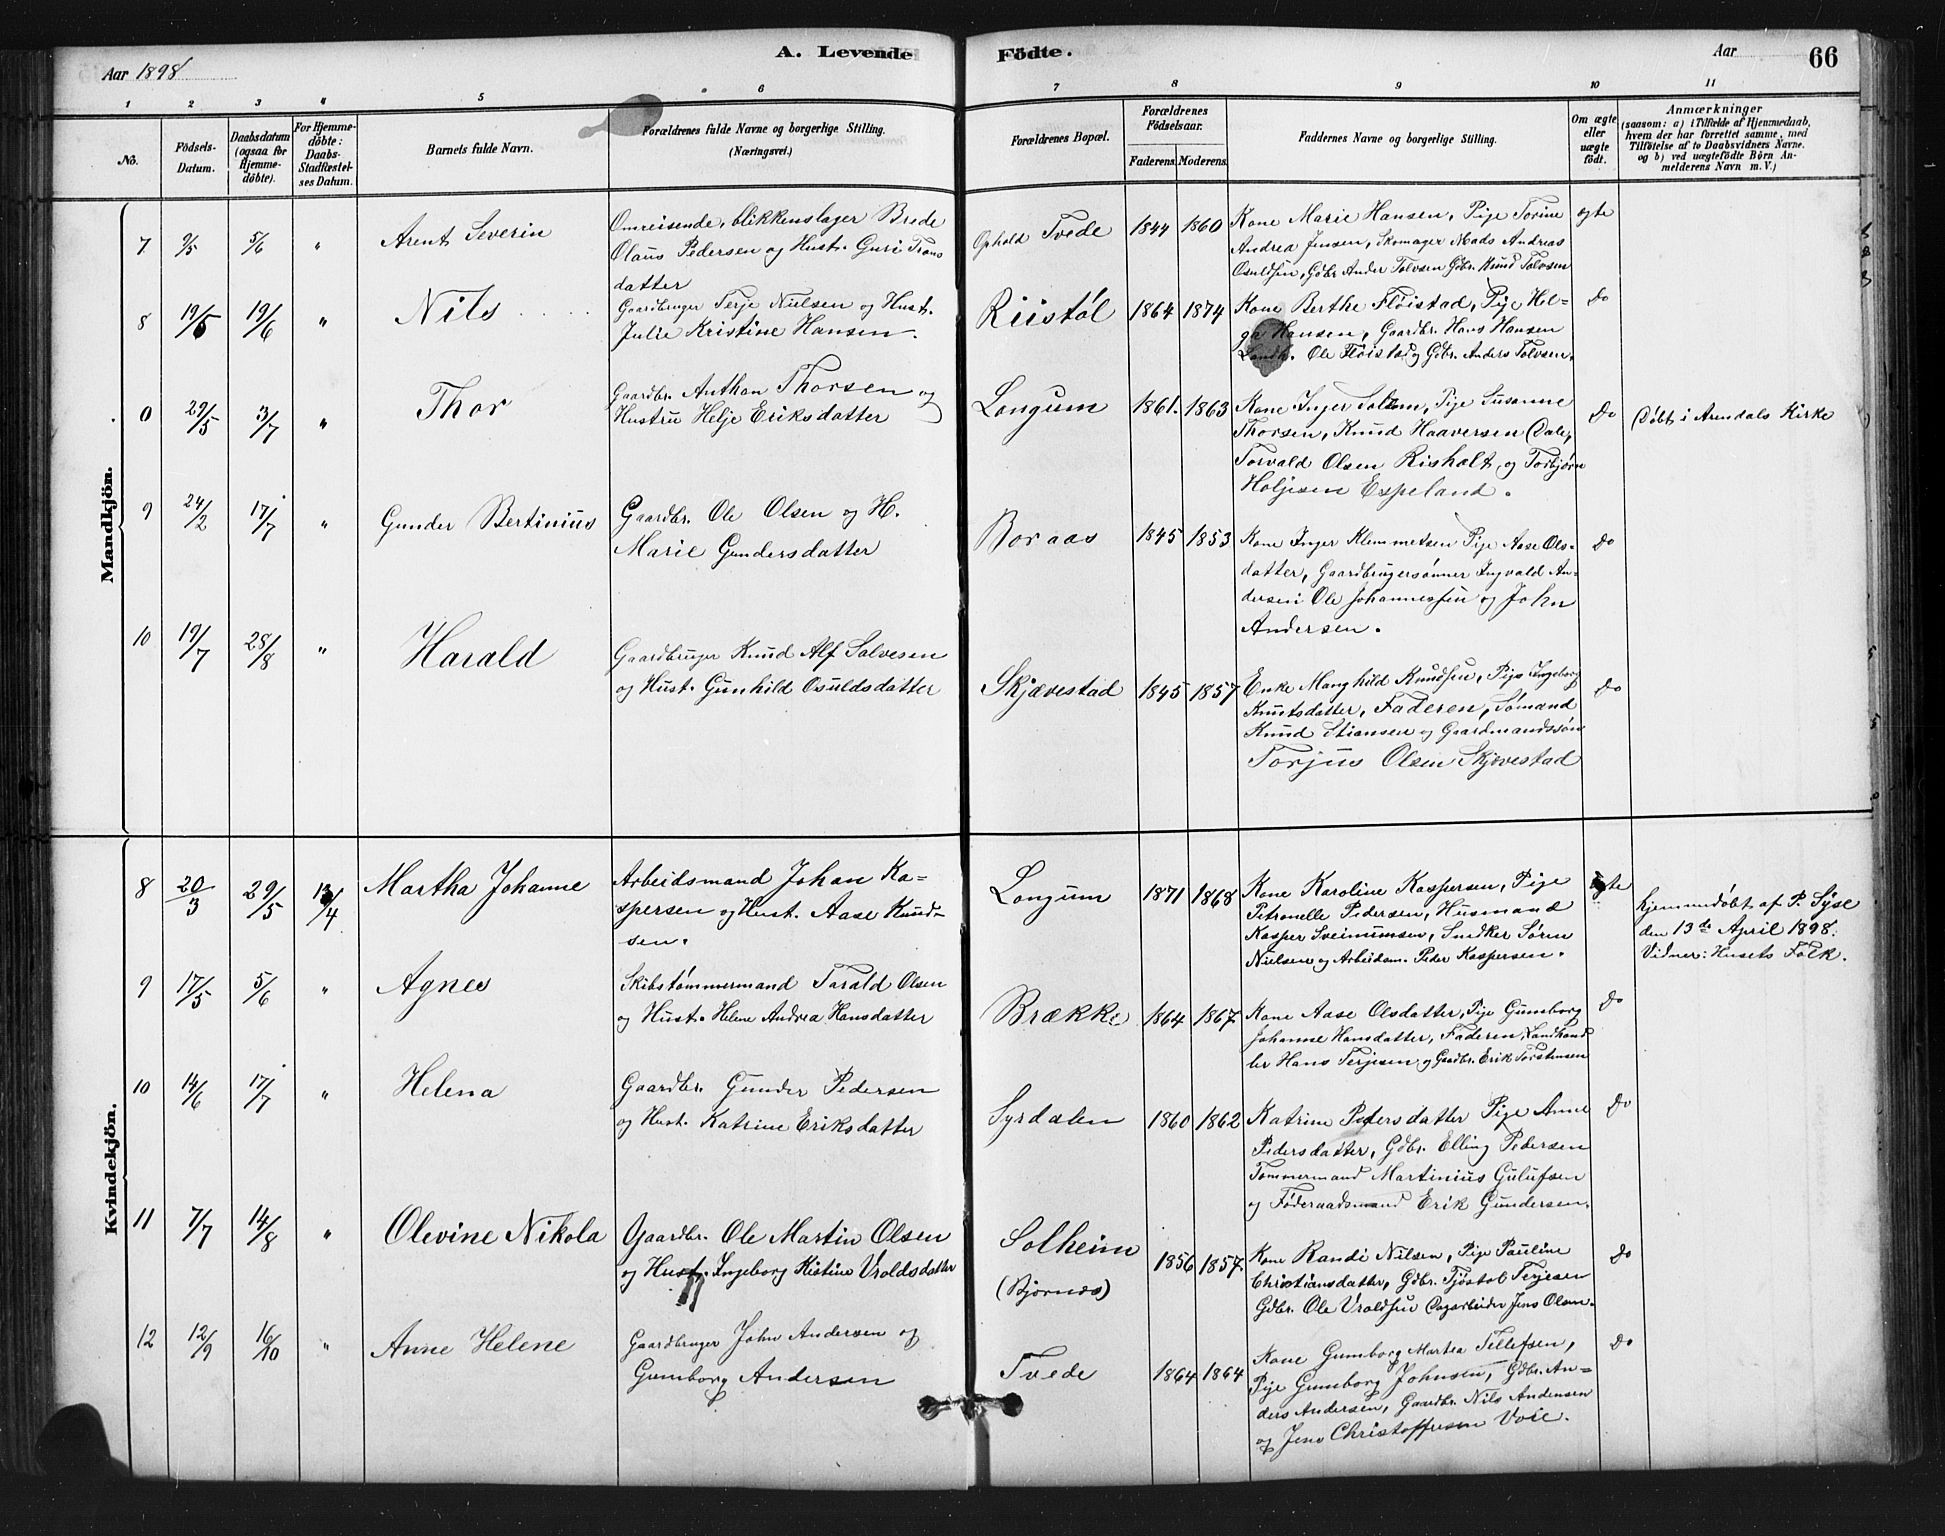 A. Levende Födte.
Aar 1898
Aar
66
1 2 3 " 5 6 7 8 9 10 11
No.
Födsels-Datum.
Daabsdatum (ogsaa for Hjemme-döbte).
For Hjemme-döbte: Daabs-Stadfæstel-ses Datum.
Barnets fulde Navn.
Forældrenes fulde Navne og borgerlige Stilling.
(Næringsvei.)
Forældrenes Bopæl.
Forældrenes Födselsaar.
Faderens. Moderens.
Faddernes Navne og borgerlige Stilling.
Om ægte eller uægte födt.
Anmærkninger
(saasom: a) i Tilfælde af Hjemmedaab, hvem der har forrettet samme, med Tilföielse af to Daabsvidners Navne. og b) ved uægtefödte Börn An-melderens Navn m. V.)
Mandkjön.
7 9/5 5/6 " Arent Severin
Omreisende, blikkenslager Brede
Olaus Pedersen og Hust. Guri Trons
datter
Ophold Tvede 1844 1860
Kone Marie Hansen, Pige Torine
Andrea Jensen, Skomager Mads Andreas
Osuldsen, Gdbr Anders Tolvsen Gdbr. Knud Tolvsen
ægte
8 19/5 19/6 " Nils
Gaardbruger Terje Nielsen og Hust.
Julie Kristine Hansen.
Riistöl 1864 1874
Kone Berthe Flöistad, Pige Hel-
ga Hansen, Gaardbr. Hans Hansen
Landb. Ole Flöistad og Gdbr. Anders Tolvsen.
do
0 29/5 3/7 " Thor
Gaardbr. Anthon Thorsen og
Hustru Helje Eriksdatter
Longum 1861. 1863
Kone Inger Pige Susanne
Thorsen, Knud Haaversen Dale,
Torvald Olsen Risholt og Torbjörn
Holjesen Espeland.
do
Döbt i Arendals Kirke
9 24/2 17/7 " Gunder Bertinius
Gaardbr. Ole Olsen og H.
Marie Gundersdatter
Boraas 1845 1853
Kone Inger Klemmetsen Pige Aase Ols-
datter, Gaardbrugersönner Ingvald An-
dersen Ole Johannessen og John
Andersen.
do
10 19/7 28/8 " Harald
Gaardbruger Knud Alf Salvesen
og Hust. Gunhild Osuldsdatter
Skjævestad 1845 1857
Enke Manghild Knudsen, Pige Ingeborg
Knutsdatter, Faderen, Sömand
Knud Stiansen og Gaardmandssön
Torjus Olsen Skjævestad
do
Kvindekjön.
8 20/3 29/5 13/4 Martha Johanne
Arbeidsmand Johan Ka-
spersen og Hust. Aase Knud-
sen.
Longum 1871 1868
Kone Karoline Kaspersen, Pige
Petronelle Pedersen, Husmand
Kasper Sveinumsen, Snedker Sören
Nielsen og Arbeidsm. Peder Kaspersen.
ægte
hjemmedöbt af P. Syse
den 13de April 1898.
Vidner: Husets Folk.
9 17/5 5/6 " Agnes
Skibstömmermand Tarald Olsen
og Hust. Helene Andrea Hansdatter
Brække 1864 1867.
Kone Aase Olsdatter, Pige Gunborg
Johanne Hansdatter, Faderen, Landhand
ler Hans Terjesen og Gaardbr. Erik Torstensen
do
10 14/6 17/7 " Helena
Gaardbr. Gunder Pedersen
og Hust. Katrine Eriksdatter
Syrdalen 1860 1862
Katrine Pedersdatter Pige Anne
Pedersdatter, Gdbr. Elling Pedersen
Tömmermand Martinius Gulufsen
og Föderaadsmand Erik Gundersen.
do
11 7/7 14/8 " Olevine Nikola
Gaardbr. Ole Martin Olsen
og Hust. Ingeborg Kistine Vroldsdatter
Solheim
(Bjornes)
1856 1857.
Kone Randi Nilsen, Pige Pauline
Christiansdatter, Gdbr. Tjöstol Terjesen
Gdbr. Ole Vroldsen Dagarbeider Jens Olsen.
do
12 12/9 16/10 " Anne Helene
Gaardbruger John Andersen og
Gunborg Andersen
Tvede 1864 1864
Kone Gunborg Martea Tellefsen,
Pige Gunborg Johnsen, Gdbr. An-
ders Andersen, Gaardbr. Nils Andersen
og Jens Christoffersen Voie.
do